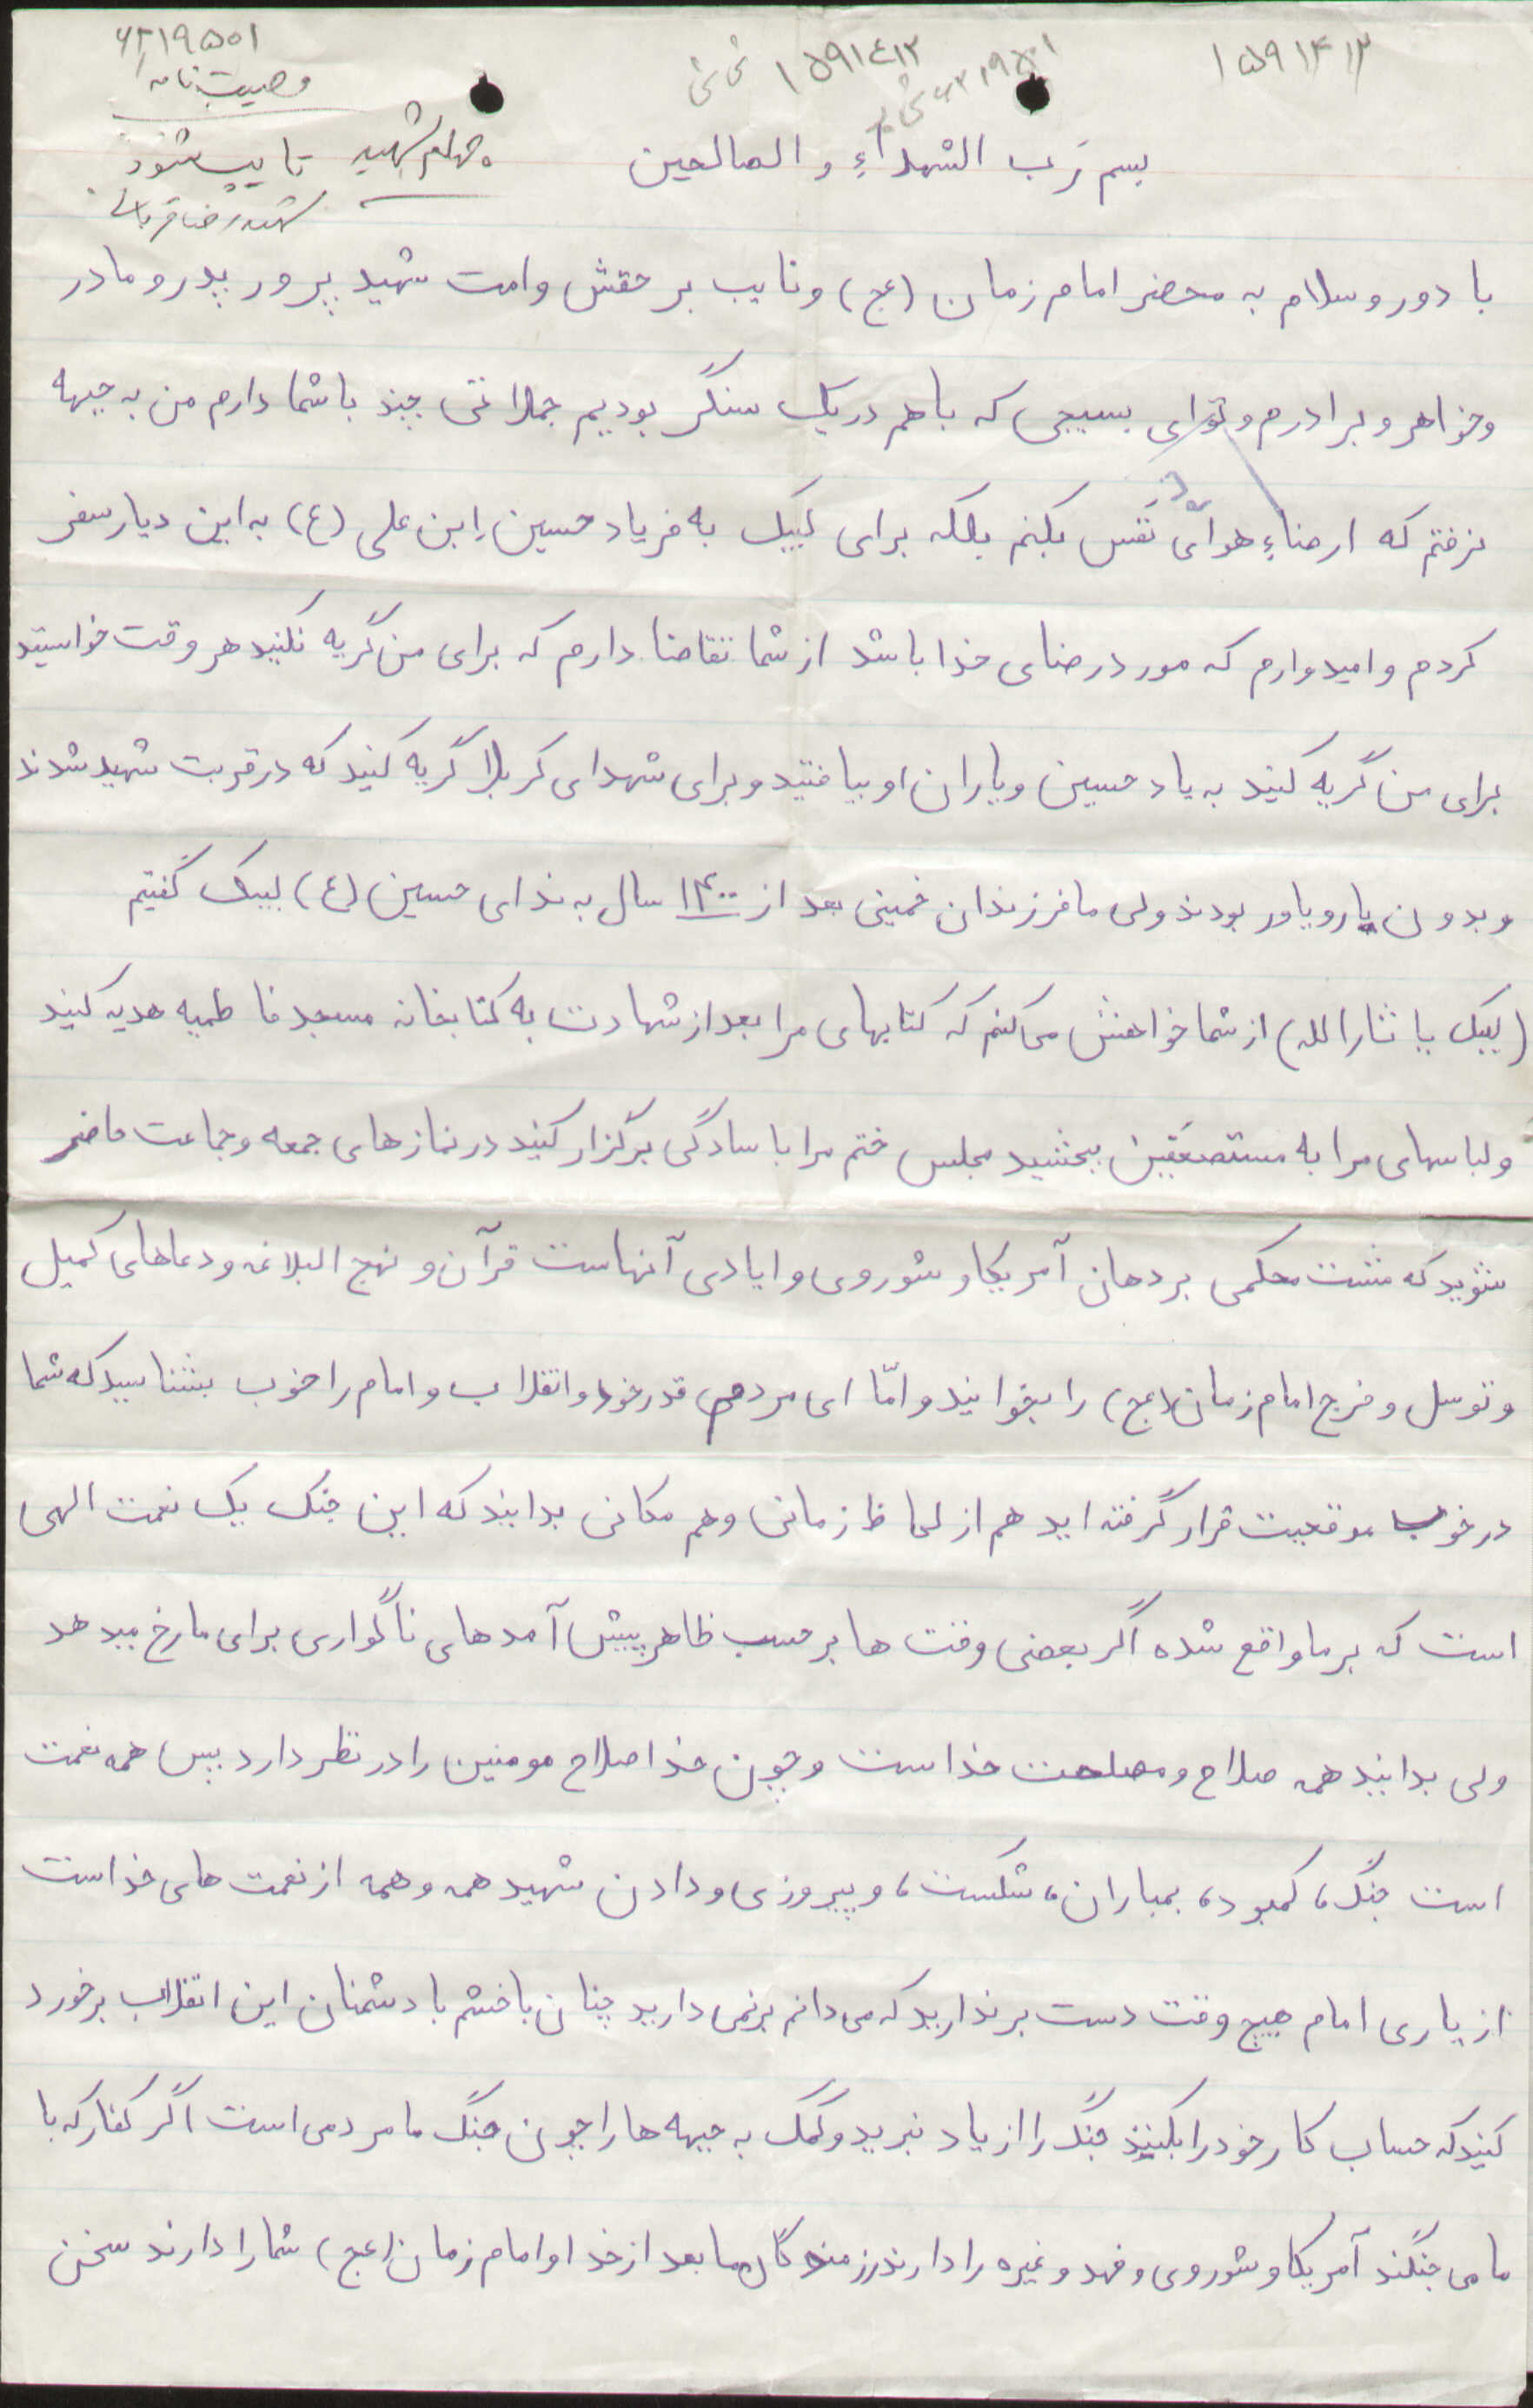 ۶۲۱۹۵۰۱
وصیت نامه
۱۵۹۱۴۱۲
۱۵۹۱۴۱۲
۶۲۱۹۵۰۱
شهید تایپ شود
شهید رضا قربانی
بسم رَب الشهداءِ و الصالحین
با دورو سلام به محضر امام زمان (عج) و نایب بر حقش و امت شهید پرور پدر و مادر
و خواهر و برادرم و توای بسیجی که با هم در یک سنگر بودیم جملاتی چند با شما دارم من به جبهه
نرفتم که ارضاءِ هوای نَفس بکنم بلکه برای لبیک به فریاد حسین اِبن علی (ع) به این دیار سفر
کردم و امیدوارم که مورد رضای خدا باشد از شما تقاضا دارم که برای من گریه نکنید هر وقت خواستید
برای من گریه کنید به یاد حسین و یاران او بیافتید و برای شهدای کربلا گریه کنید که در قربت شهید شدند
و بدون یار و یاور بودند ولی ما فرزندان خمینی بعد از ۱۴۰۰ سال به ندای حسین (ع) لبیک گفتیم
(لبیک یا ثارالله) از شما خواهش می کنم که کتابهای مرا بعد از شهادت به کتابخانه مسجد فاطمیه هدیه کنید
و لباسهای مرا به مستضعَفین ببخشید مجلس ختم مرا با سادگی برگزار کنید در نمازهای جمعه و جماعت حاضر
شوید که مشت محکمی بر دهان آمریکا و شوروی و ایادی آنهاست قرآن و نهج البلاغه و دعاهای کمیل
و توسل و فرج امام زمان (عج) را بخوانید و امّا ای مردم قدر خود و انقلاب و امام را خوب بشناسید که شما
در خوب موقعیت قرار گرفته اید هم از لحاظ زمانی و هم مکانی بدانید که این جنگ یک نعمت الهی
است که بر ما واقع شده اگر بعضی وقت ها بر حسب ظاهر پیش آمدهای ناگواری برای ما رخ میدهد
ولی بدانید همه صلاح و مصلحت خداست و چون خدا صلاح مومنین را در نظر دارد پس همه نعمت
است جنگ، کمبود، بمباران، شکست، و پیروزی و دادن شهید همه و همه از نعمت های خداست
از یاری امام هیچ وقت دست برندارید که می دانم برنمی دارید چنان با خشم با دشمنان این انقلاب برخورد
کنید که حساب کار خود را بکنند جنگ را از یاد نبرید و کمک به جبهه ها را چون جنگ ما مردمی است اگر کفار که با
ما می جنگند آمریکا و شوروی و فهد و غیره را دارند رزمندگان ما بعد از خدا و امام زمان (عج) شما را دارند سخن